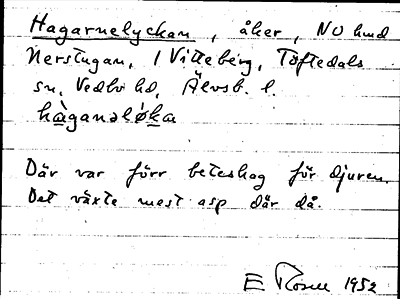 Hagarnelyckan, åker, NO hmd
Nerstugan, 1 Vitteberg, Töftedals
sn, Vedbo hd, Älvsb. l.
hàganəløka
Där var förr beteshag för djuren.
Det växte mest asp där då.
E Rosell 1952